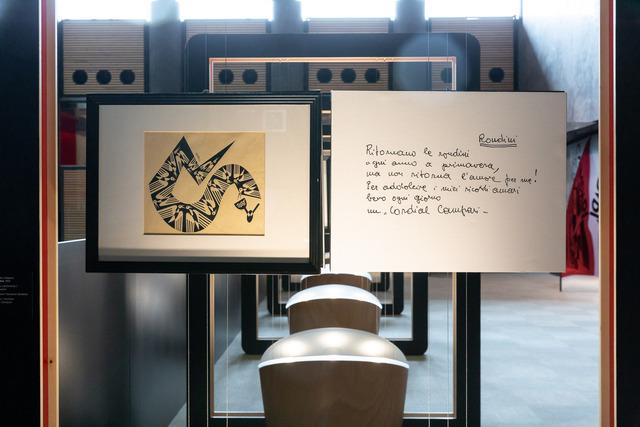 Rondini
Ritornano le rondini
ogni anno a primavera,
ma non ritorna l'amore per me!
Per addolcire i miei ricordi amari
bevo ogni giorno
un „Cordial Campari„